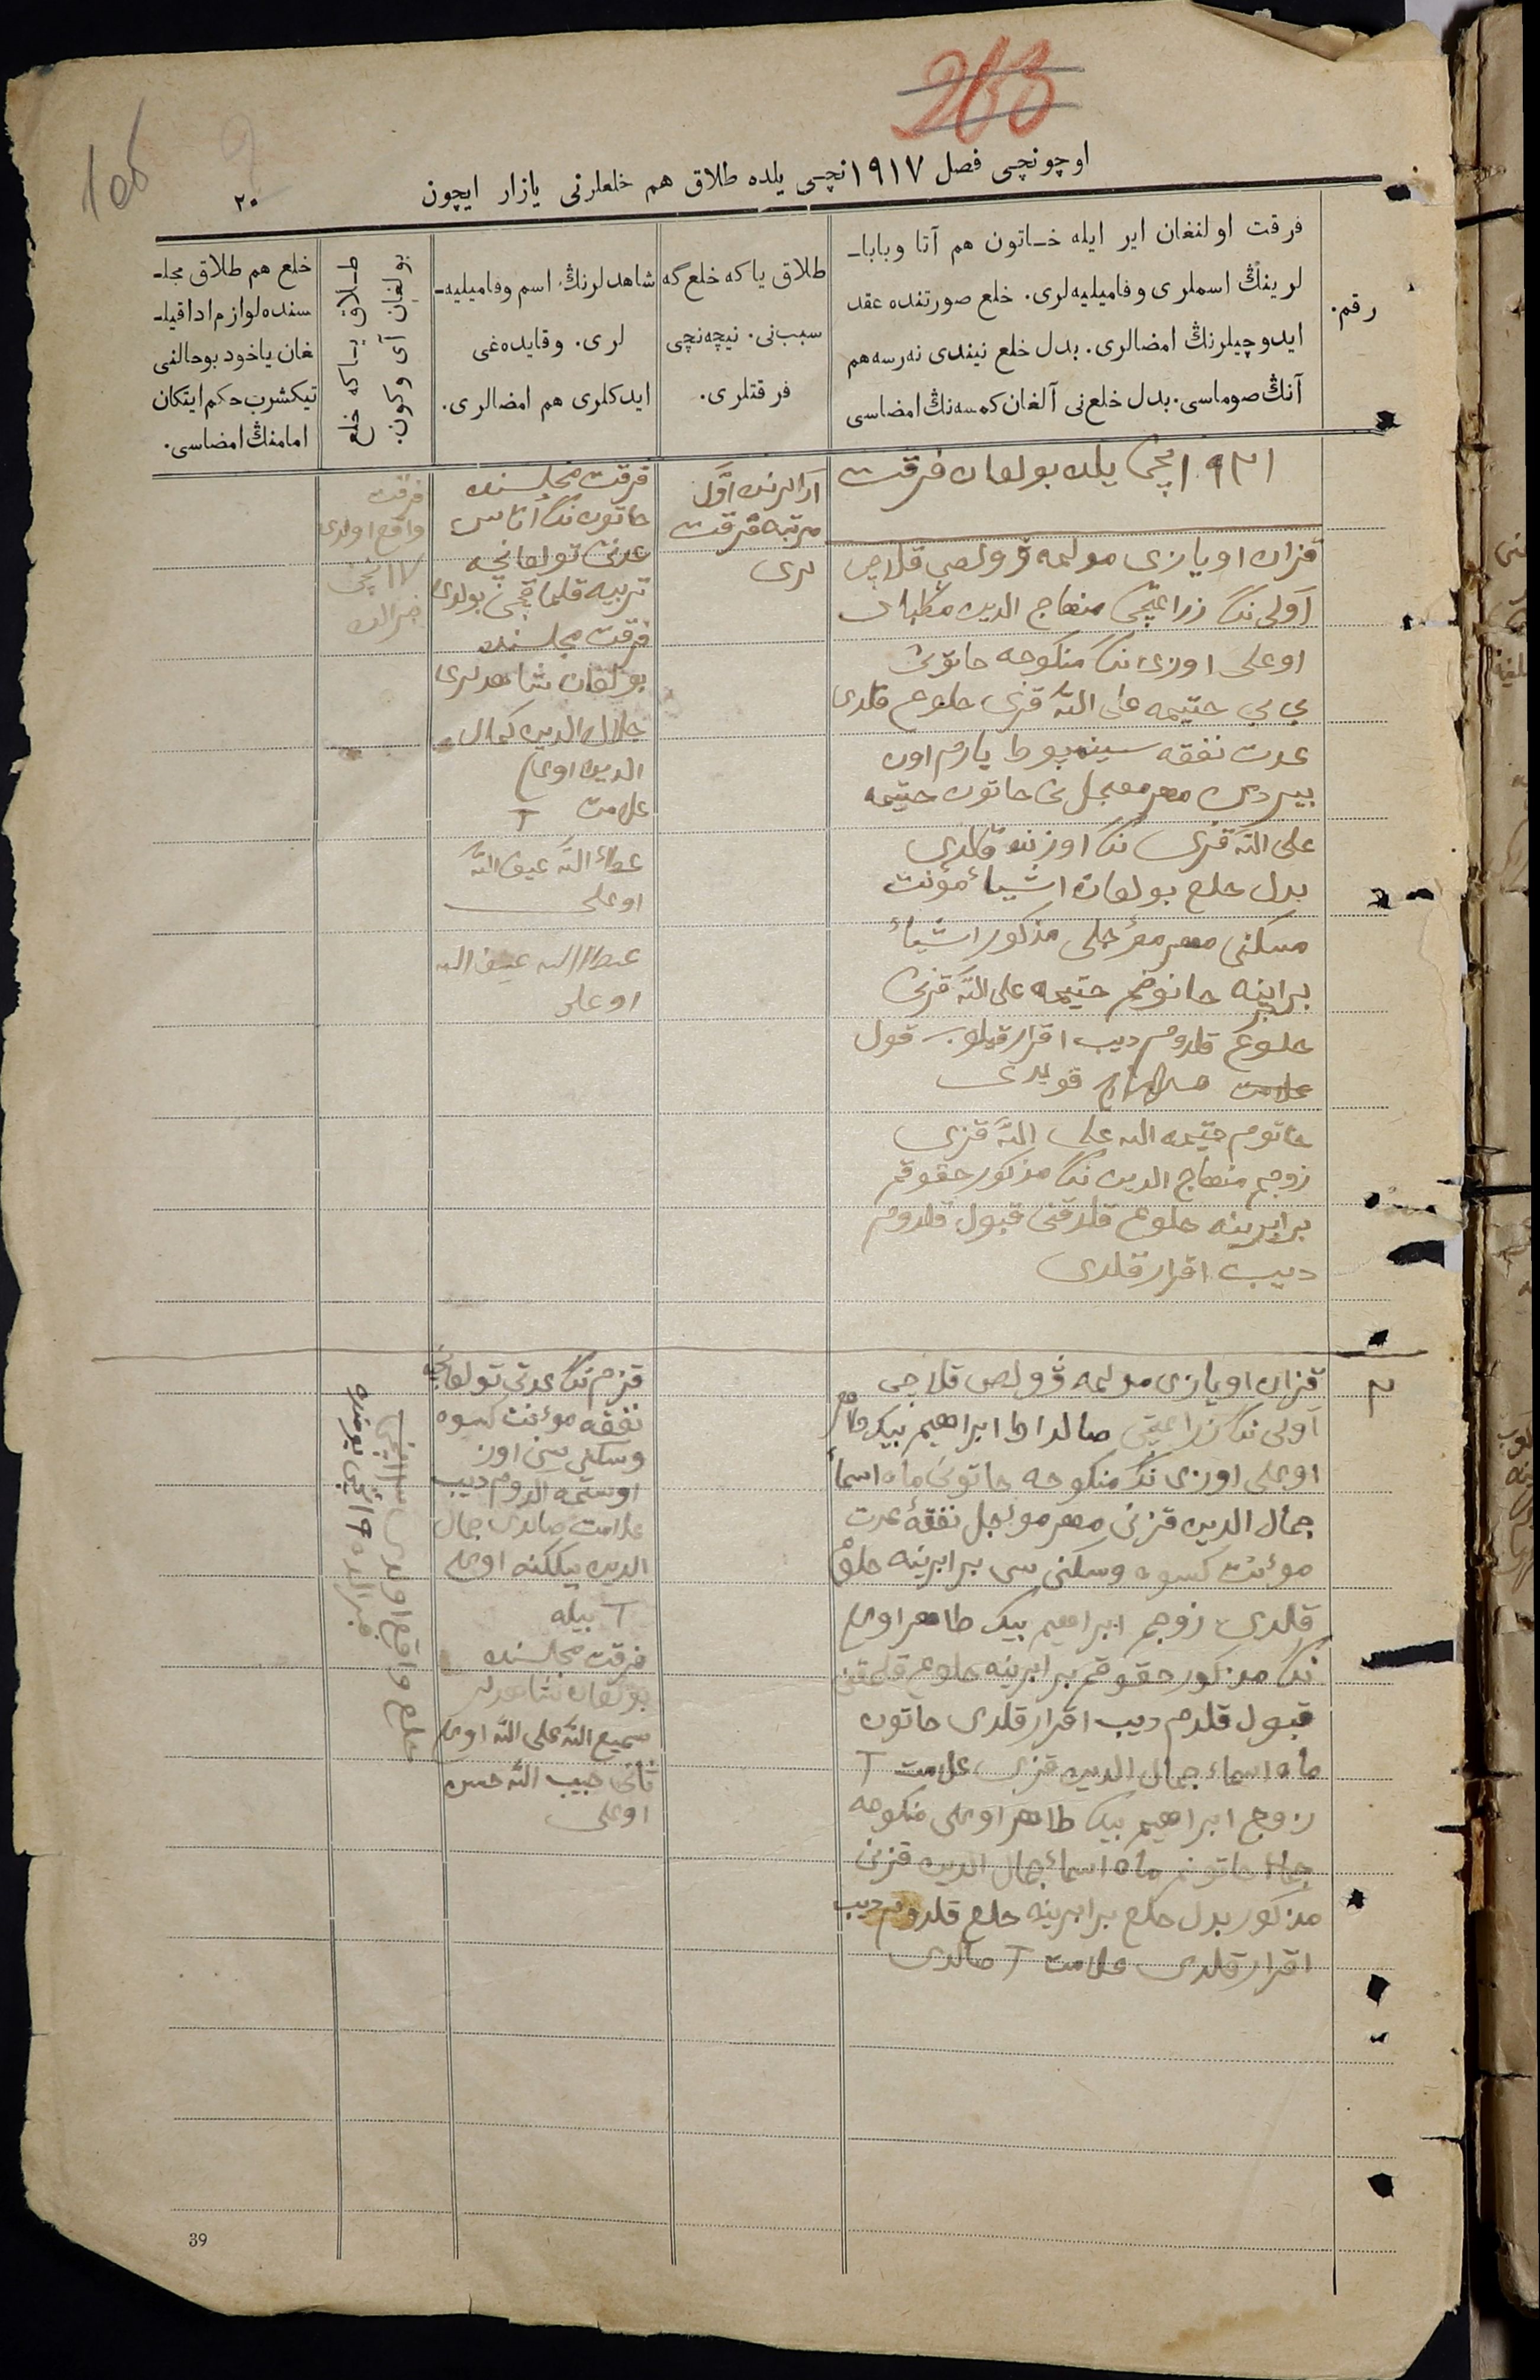 263
106
اوچونچی فصل ١٩١٧نچی یلده طلاق هم خلعلرنی یازار ایچون
٢٠
رقم.
فرقت اولنغان ایر ایله خـاتون هم آتا وبابا-
لرینڭ اسملری وفامیلیه‌لری. خلع صورتنده عقد
ایدوچیلرنڭ امضالری. بدل خلع نیندی نه‌رسه هم
آنڭ صوماسی. بدل خلع‌نی آلغان کمسه‌نڭ امضاسی
طلاق یا که خلع گه
سبب‌نی. نیچه‌نچی
فرقتلری.
شاهدلرنڭ اسم وفامیلیه-
لری. وقایده‌غی
ایدکلری هم امضالری.
طـلاق یـاکه خلع
بولغان آی وکون.
خلع هم طلاق مجلـ
سنده لوازم ادا قیلـ
غان یاخود بو حالنی
تیکشرب حکم ایتکان
امامنڭ امضاسی.
یلده بولغان فرقت
قزان اویازی مولمه وولصی قلاچی
آولی ننک زراعتچی منهاج الدین
اوغلی اوزی ننک منکوحه خاتونی
بی بی حتیمه علی اللّه قزی خلوع قلدی
عدت نفقه سینه یارم اون
بیردی مهر معجل نی خاتون حتیمه
علی اللّه قزی ننک اوزنده قالدی
بدل خلع بولغان اشیاء مؤنت
مسکنی مهر مؤجلی مذکور اشیاء
برابرینه خاتونم حتیمه علی اللّه قزی
خلوع قلدوم دیب اقرار قیلوب قول
علامت قویدی
خاتونم حتیمه علی اللّه قزی
زوجم منهاج الدین ننک مذکور حقوقم
برابرینه خلوع قلدقنی قبول قلدوم
دیب اقرار قلدی
آرالرنده اوّل
مرتبه فرقت
لری
فرقت مجلسنده
خاتون ننک آتاسی
عدتی تولغانچه
تربیه قلماقچی بولدی
فرقت مجلسنده
بولغان شاهدلری
جلال الدین کمال
الدین اوغلی
علامت T
عطاء اللّه عیف اللّه
اوغلی
عطاءالله عیف الله
اوغلی
فرقت
واقع اولدی
١٧نچی
فبرالده
٢
قزان اویازی مولمه وولصی قلاچی
آولی ننک زراعتچی صالداط ابراهیم بیک طاهر
اوغلی اوزی ننک منکوحه خاتونی ماه اسماء
جمال الدین قزنی مهر مؤجل نفقهٔ عدت
مؤنت کسوه وسکنی سی برابرینه خلع
قلدی زوجم ابراهیم بیک طاهر اوغلی
ننک مذکور حقوقم برابرینه خلوع قلدقنی
قبول قلدم دیب اقرار قلدی خاتون
ماه اسماء جمال الدین قزی علامت T
زوج ابراهیم بیک طاهر اوغلی منکوحه
خاتونم ماه اسماء جمال الدین قزنی
مذکور بدل خلع برابرینه خلع قلدوم دیب
اقرار قلدی علامت T صالدی
قزم ننک عدتی تولغانچه
نفقه مؤنت کسوه
وسکنی سین اوز
اوستمه الدوم دیب
علامت صالدی جمال
الدین اوغلی
T بیله
فرقت مجلسنده
بولغان شاهدلر
سمیع اللّه علی اللّه اوغلی
ثانی حبیب اللّه حسن
اوغلی
خلع واقع اولدی
فبرالده
39